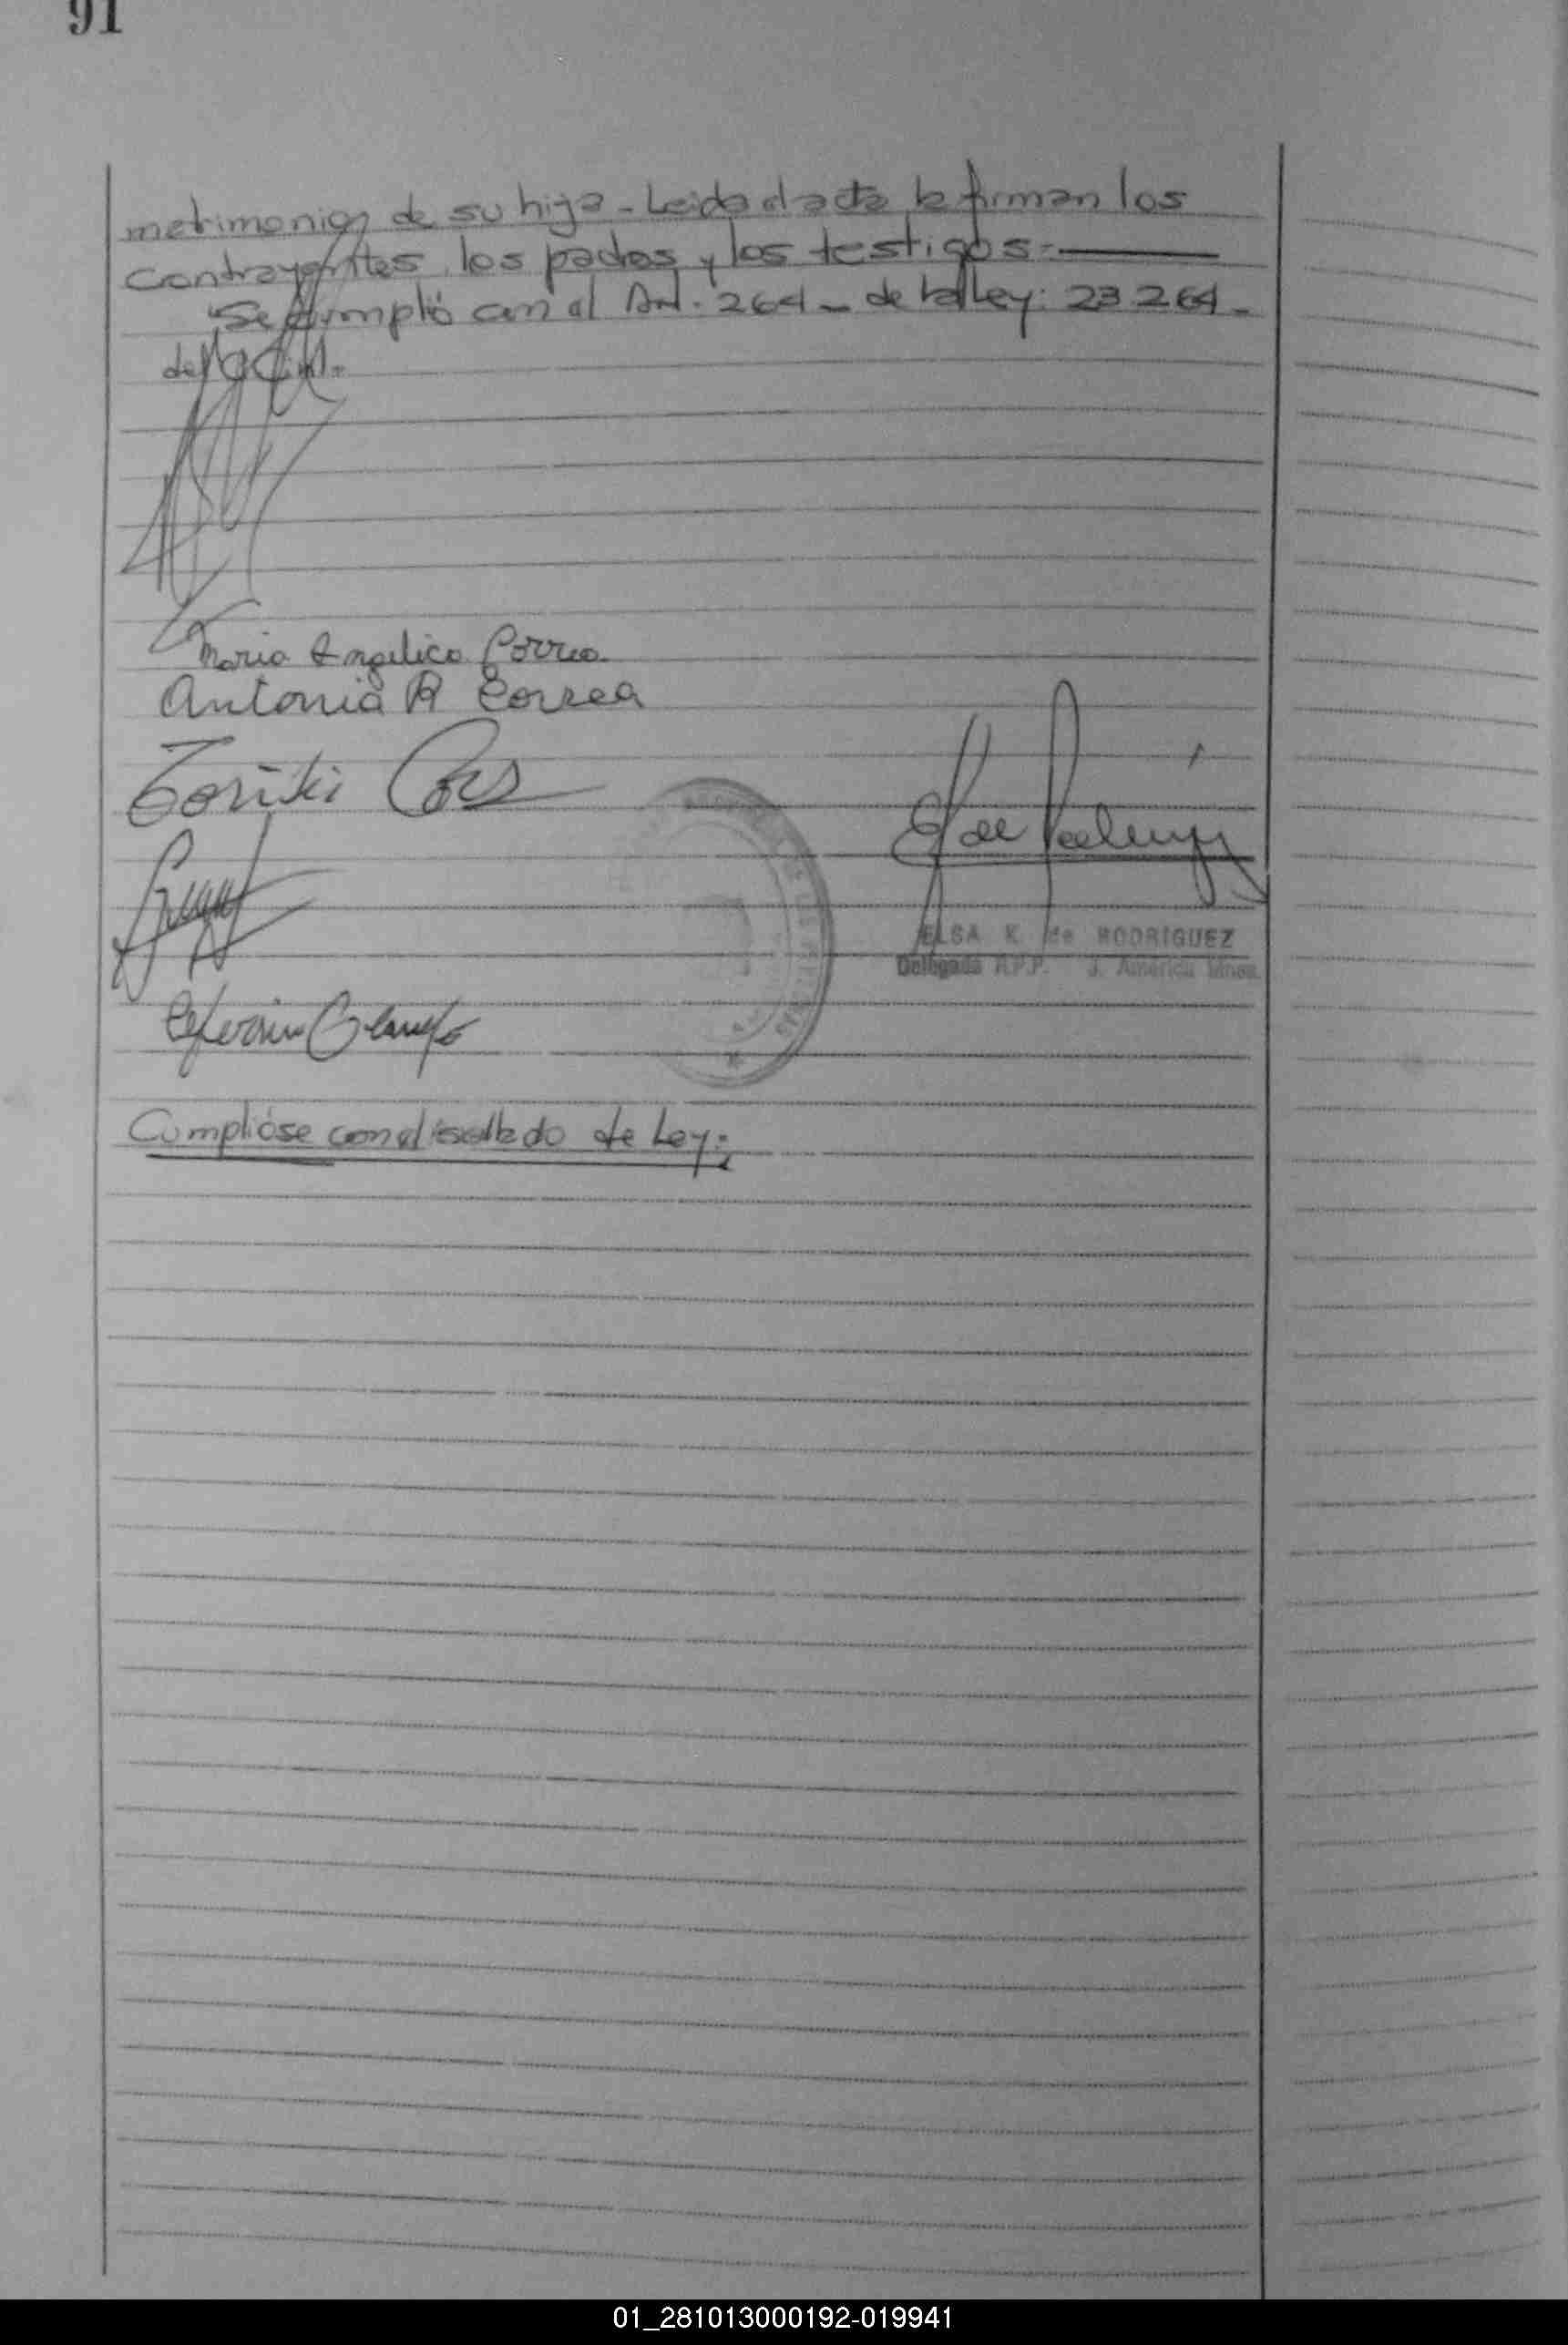 91
metrimonion de su hija - Leida el acta la firman los
contrayentes, los padres y los testigos.-
Se cumplió con el Art. 264 - de la Ley: 23.264 -
del C. Civil.-
Maria Angelica Correa
Antonia R Correa
ELSA K. de RODRIGUEZ
Delegada R.P.P. J. América Mnes.
Ceferino Ocampo
Cumplióse con el sellado de Ley:
01_281013000192-019941